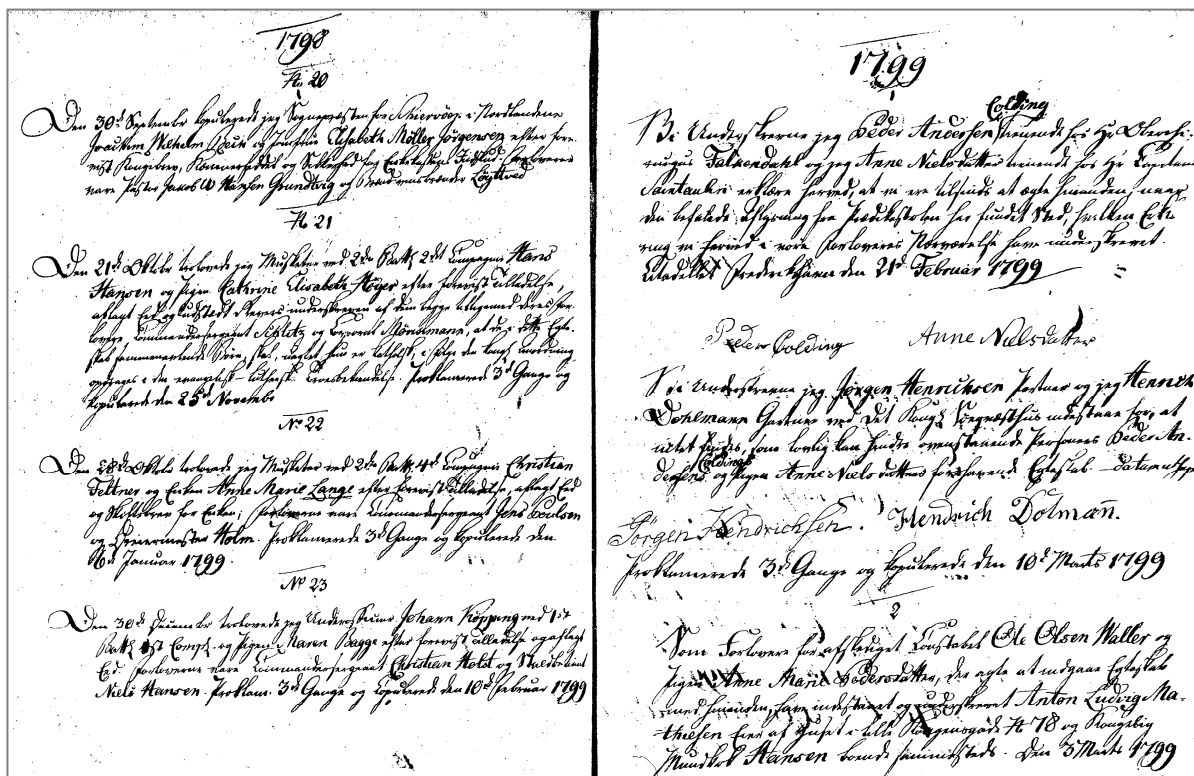 1798
No 20
Den 30d September kopulerede jeg Sognepræsten for Skiervöe i Nordlandene
Joachim Wilhelm og Jomfrue Elisabeth Möller Jörgensen efter fore-
vist Kongebrev,
vare Pastor Jacob W Hansen Grundtvig og Löytved
No 21
Den 21d Oktobr trolovede jeg Musketer ved 2den Batt. 2det Compagnie Hans
Hansen og Pigen Cathrine Elisabeth Höyer efter forevist Tilladelse,
aflagt Eed og udstedt Revers underskreven af dem begge tilligemed deres For-
lovere, Commandeersergeant Schlotz og Corporal Mönsemann, at de i dette Egte-
skab sammenavlende Börn, skal, uagtet hun er katholsk, ifölge den kongl. Anordning
opdrages i den evangelisk-lutherske Troesbekendelse. Proklamerede 3d Gange og
kopulerede den 25d Novembr
No 22
Den 28d Oktobr trolovede jeg Musketer ved 2den Batt. 4d Compagnie Christian
Feltner og Enken Anne Marie Lange efter forevist Tilladelse, aflagt Eed
og Skiftebrev for Enken; Forloverne vare Commandeersergeant Jens Poulsen
og Holm. Proklamerede 3d Gange og kopulerede den
Januar 1799.
No 23
Den 30d Decembr trolovede jeg Underofficer Johann Köpping ved 1st
Batt. 1st Comp. og Pigen Maren Bagge efter forevist Tilladelse og aflagt
Eed. Forloverne vare Commandeersergeant Christian Holst og
Niels Hansen. Proklam. 3d Gange og kopulerede den 10d Februar 1799
1799
1
Colding
Vi Underskrevne jeg Peder Andersen tienende hos Hr
Falsendahl og jeg Anne Nielsdatter tienende hos Hr Capitain
erklære herved, at vi ere tilsinds at ægte hinanden, naar
den befalede Aflysning fra Prædikestolen har fundet Sted, hvilken Erklæ-
ring vi herved i vore Forloveres Nærværelse have underskrevet.
Citadellet Frederikshavn den 21d Februar 1799
Peder Colding Anne Nielsdatter
Vi Underskrevne jeg Jörgen Henrichsen Portner og jeg Henrich
Dohlmann Gartner ved Det Kongl. indestaae for, at
intet findes, som lovlig kan hindre ovenstaaende Personers Peder An-
Coldings
dersens og Pigen Anne Nielsdatters forehavende Egteskab
Jörgen Hendrichsen. Hendrich Dolmann.
Proklamerede 3d Gange og kopulerede den 10d Marts 1799
2
Som Forlovere for afskediget Constabel Ole Olsen Waller og
Pigen Anne Marie Pedersdatter, der agte at indgaae Egteskab
med hinanden, have indestaaet og underskrevet Anton Ludvig Ma-
thiesen Eier af Huset i lille Kongensgade No 78 og Kongelig
Mundkok Hansen boende sammesteds. Den 3 Marts 1799